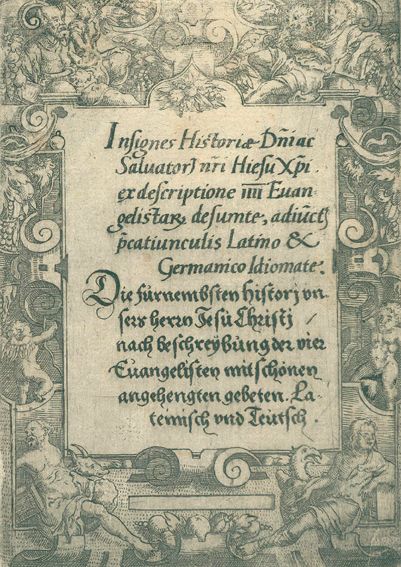 Insignes Historiæ Dñi ac
Salvatorꝭ nr̃i Hiesu Xp̃i
ex descriptione iiii Euan-
gelistaꝝ desumte, adiūctꝭ
p̃catiunculis Latino &
Germanico Idiomate.
Die fürnembsten historj vn
sers herrn Jesu Christj
nach beschreybung der vier
Euangelisten mit schönen
angehengten gebeten. La-
teinisch vnd Teutsch.